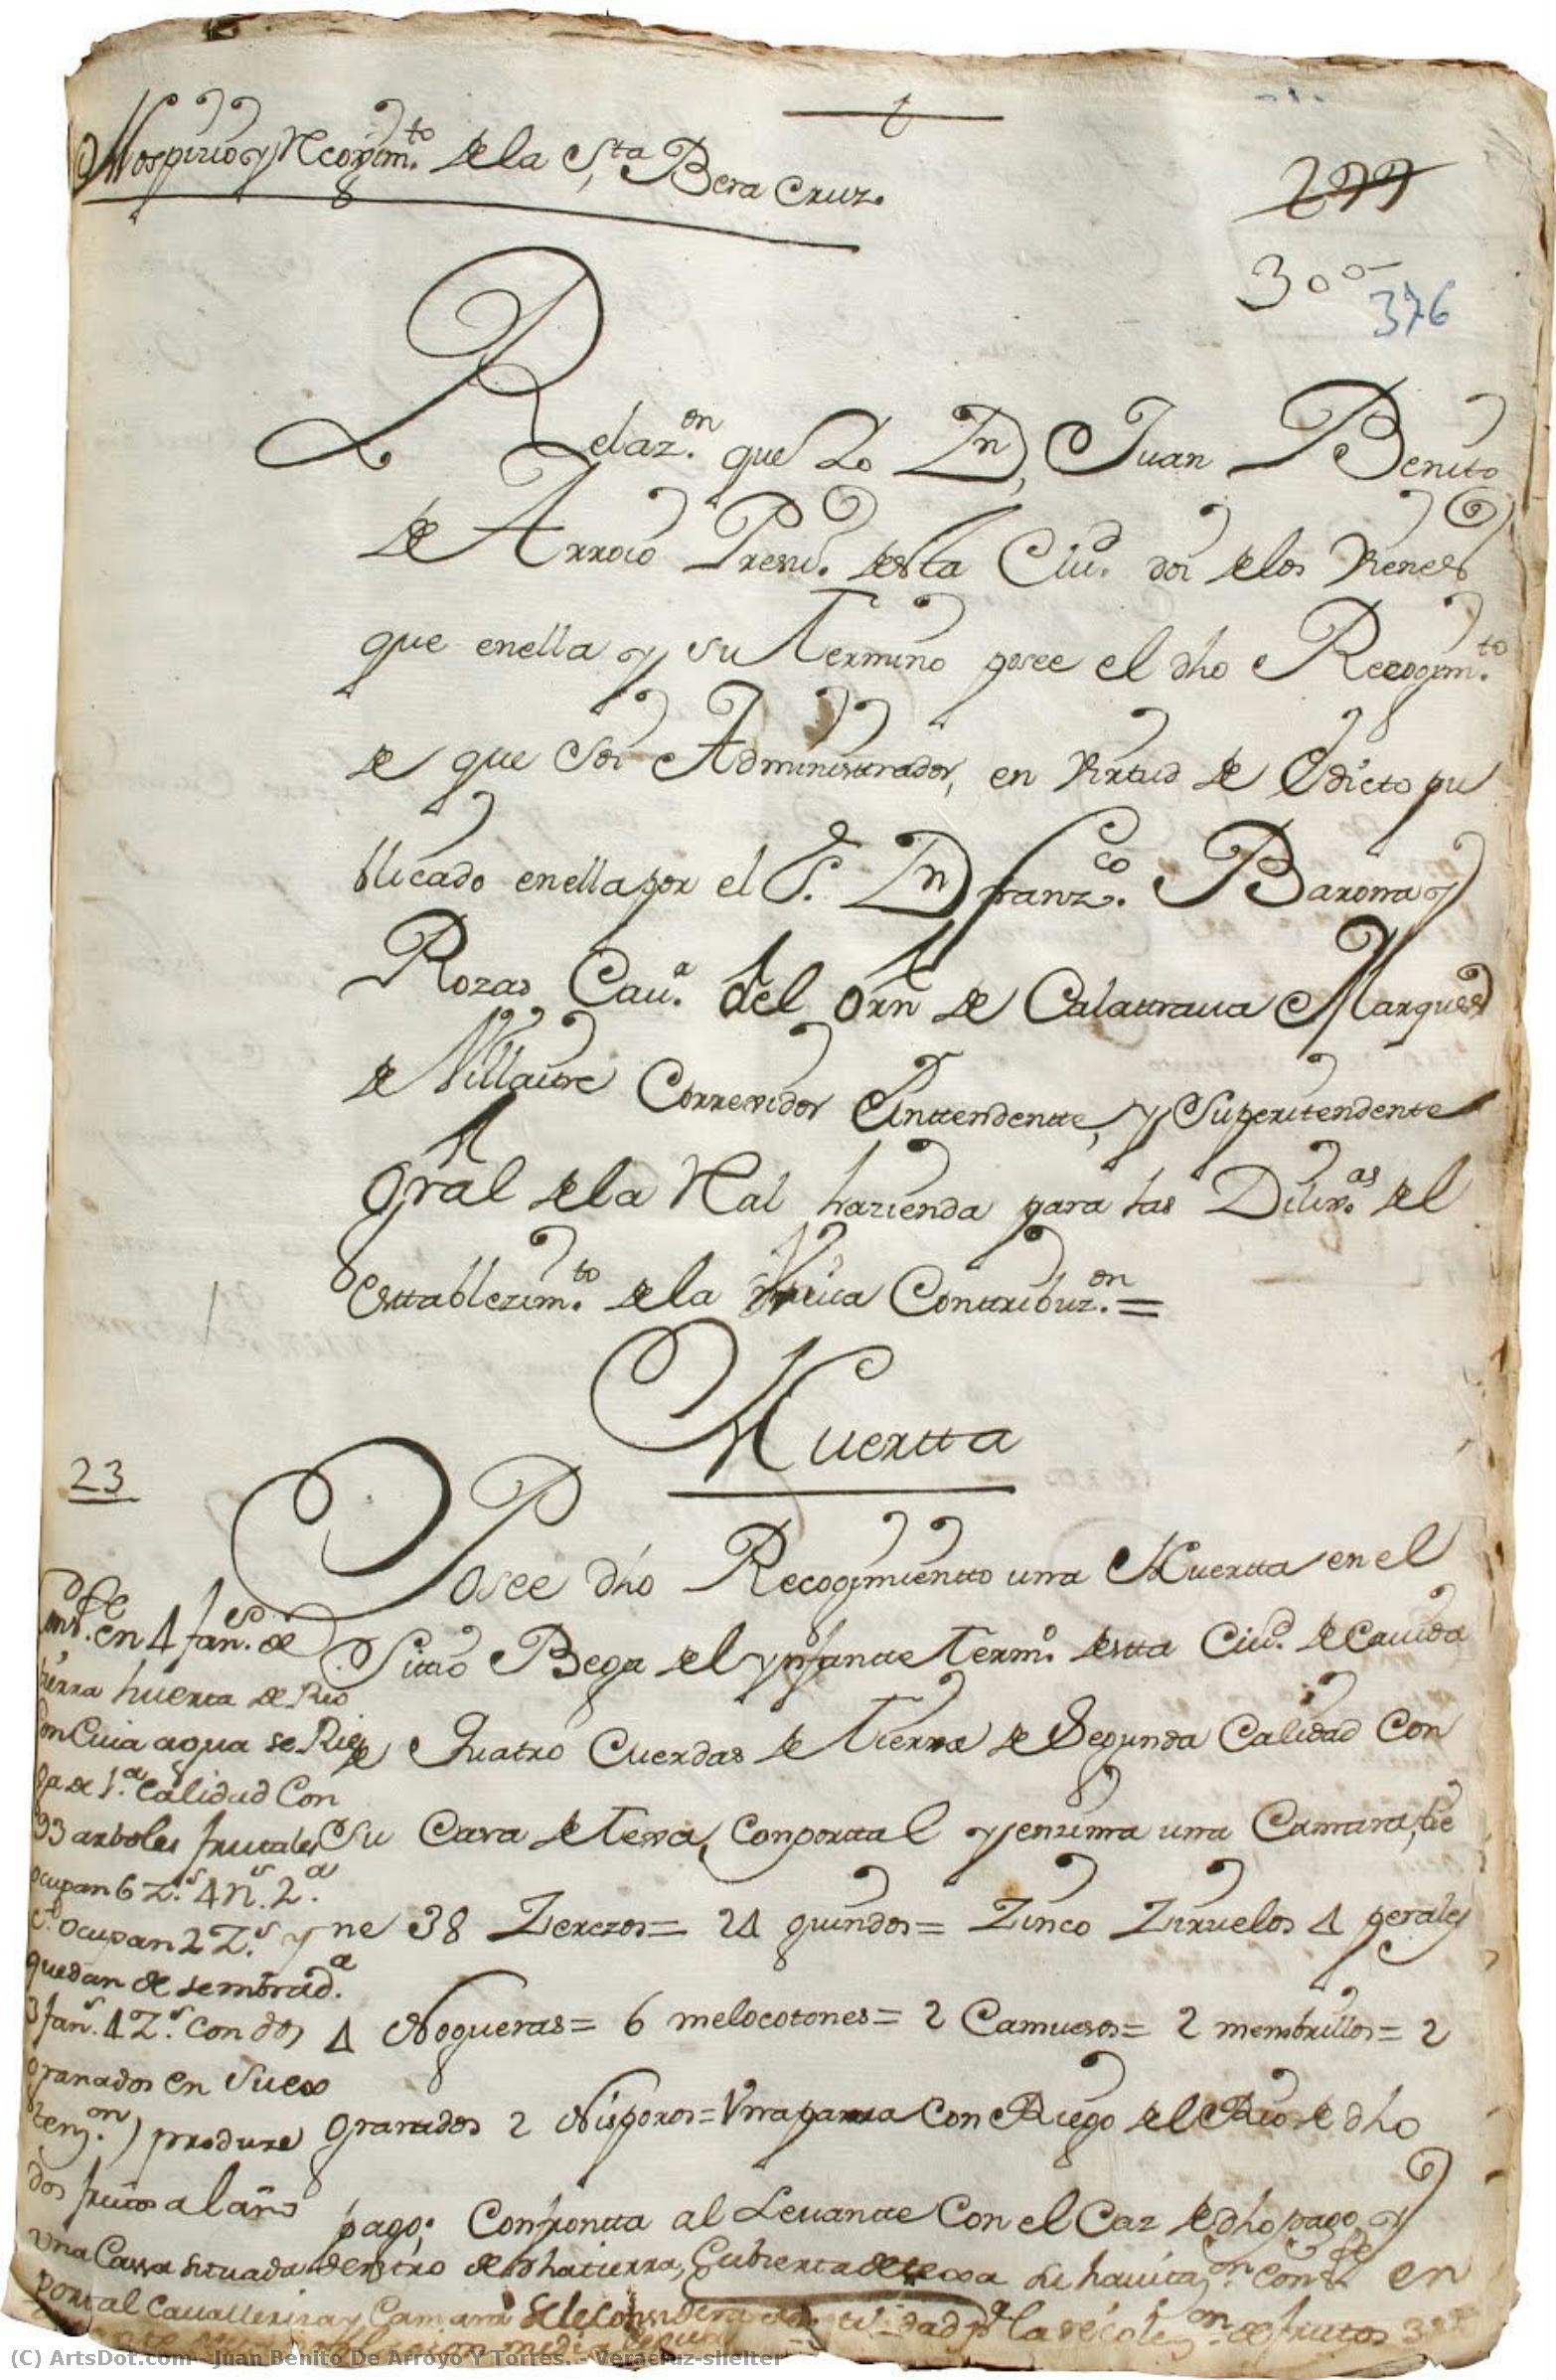 Hospizio y Recogim.to de la S.ta Bera Cruz.
299
300
376
Relaz.on que Io Dn Juan Benito
de Arroio Presv.o desta Ciu.d doi de los Vienes
que enella y su Termino posee el dho Recogim.to
de que Soi Administrador, en virtud de Edicto pu
blicado enella por el S.r Dn Franz.co Barona y
Rozas Cau.a del Orn de Calattraua Marques
de Villaitre Correxidor Inttendentte, y Superitendente
Gral de la Ral hazienda para las Dilix.as del
Esttablezim.to de la Unica Conttribuz.on =
Huertta
23
Posee dho Recogimientto una Huertta en el
Sittio Bega del ynfantte Term.o destta Ciu.d de Cauida
de Quatro Cuerdas de Tierra de Segunda Calidad Con
Su Casa de Texa, Conporttal y enzima una Camara, tie
ne 38 Zerezos = 24 guindos = Zinco Ziruelos 4 perales
4 Nogueras = 6 melocotones = 2 Camuesos = 2 membrillos = 2
Granados 2 Nisporos = Una parra Con Riego del Rio de dho
pago; Confrontta al Leuantte Con el Caz de dho pago, y
en 4 fan.s de
tierra huerta de Rio
Con Cuia agua se Rie
ga de 1.a Calidad Con
93 arboles frutales
ocupan 6 Z.s 4 n.s 2.a
ocupan 2 Z.s y
quedan de sembrad.a
3 fan.s 4 Z.s Con dos
granados en Su ex
tenz.on) produze
dos frutos al año
Una Cassa situada dentro de dha tierra, Cubierta de texa su hauitaz.on Const.e en
portal Caualleriza y Camara se le considera de utilidad p.a la recolez.on de frutos
(C) ArtsDot.com - Juan Benito De Arroyo Y Tortes. - Veracruz-shelter